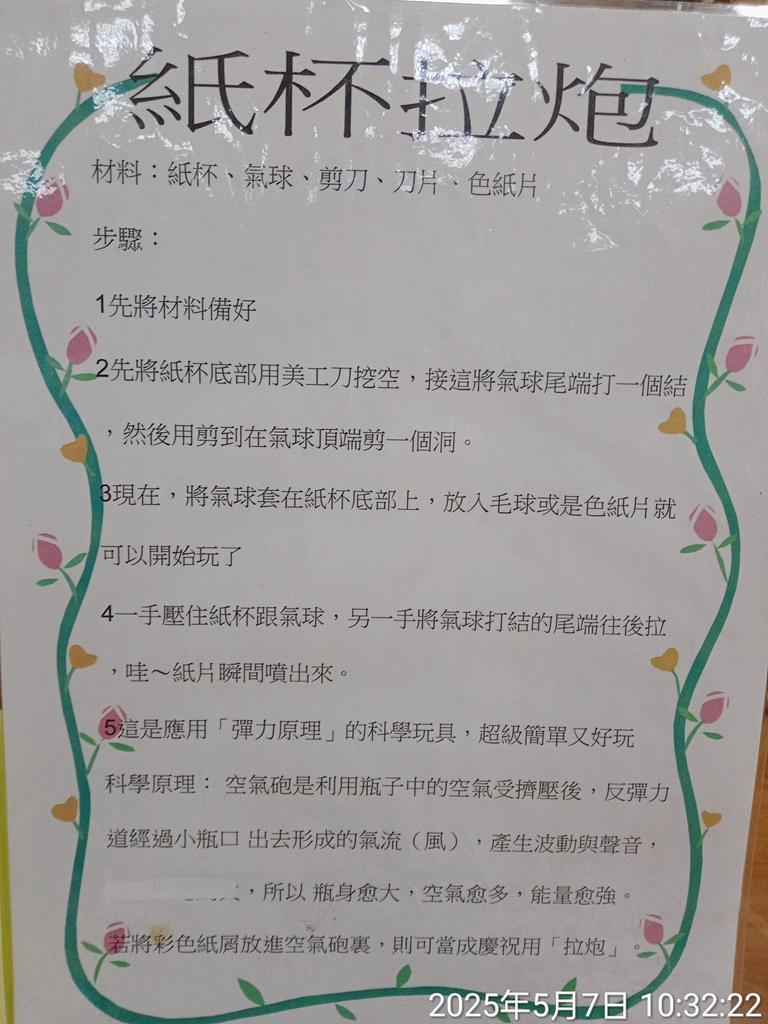 紙杯拉炮
材料：紙杯、氣球、剪刀、刀片、色紙片
步驟：
1先將材料備好
2先將紙杯底部用美工刀挖空，接這將氣球尾端打一個結
，然後用剪到在氣球頂端剪一個洞。
3現在，將氣球套在紙杯底部上，放入毛球或是色紙片就
可以開始玩了
4一手壓住紙杯跟氣球，另一手將氣球打結的尾端往後拉
，哇～紙片瞬間噴出來。
5這是應用「彈力原理」的科學玩具，超級簡單又好玩
科學原理： 空氣砲是利用瓶子中的空氣受擠壓後，反彈力
道經過小瓶口 出去形成的氣流（風），產生波動與聲音，
，所以 瓶身愈大，空氣愈多，能量愈強。
若將彩色紙屑放進空氣砲裏，則可當成慶祝用「拉炮」。
2025年5月7日 10:32:22